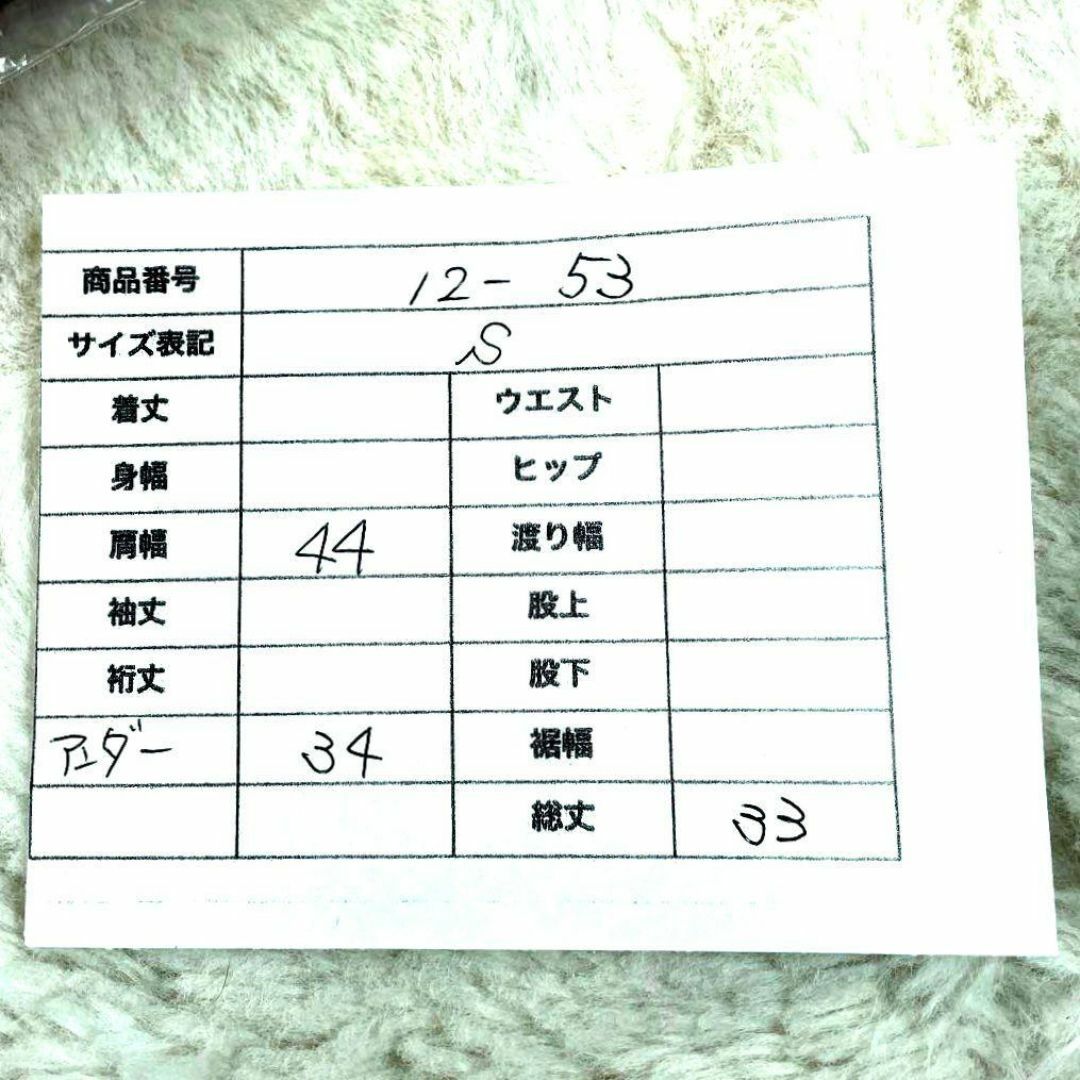 商品番号 12- 53
サイズ表記 S
着丈 ウエスト
身幅 ヒップ
肩幅 44 渡り幅
袖丈 股上
裄丈 股下
アンダー 34 裾幅
総丈 33